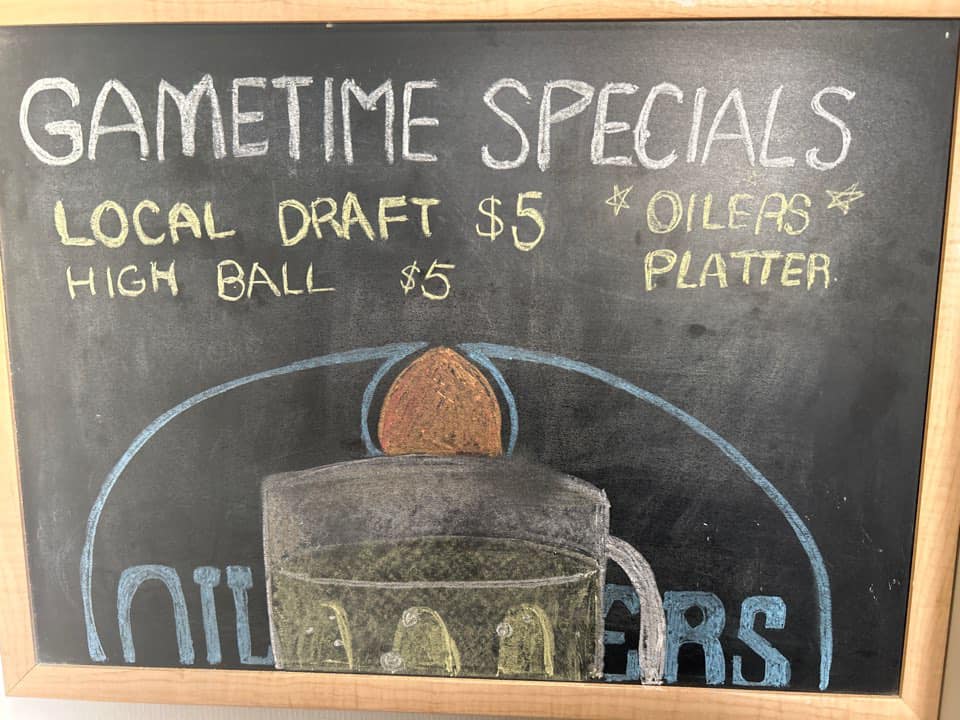 GAMETIME SPECIALS
LOCAL DRAFT $5
HIGH BALL $5
OILERS
PLATTER
OIL ERS